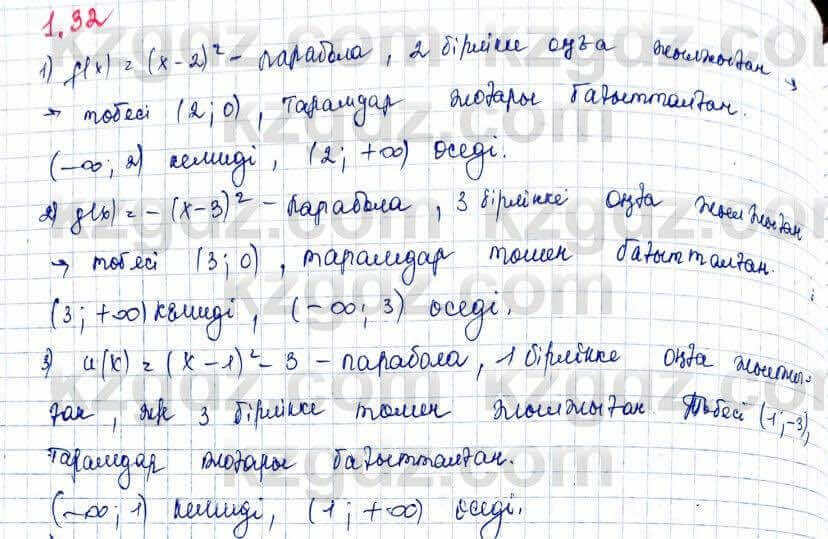 1.32
1) f(x) = (x-2)² - парабола, 2 бірлікке оңға жылжыған,
→ төбесі (2; 0), тармақтар жоғары бағытталған.
(-∞; 2) кемиді, (2; +∞) өседі.
2) g(x) = -(x-3)² - парабола, 3 бірлікке оңға жылжыған
→ төбесі (3; 0), тармақтар төмен бағытталған.
(3; +∞) кемиді, (-∞; 3) өседі.
3) u(x) = (x-1)² - 3 - парабола, 1 бірлікке оңға жылжы-
ған, және 3 бірлікке төмен жылжыған. Төбесі (1; -3),
тармақтар жоғары бағытталған.
(-∞; 1) кемиді, (1; +∞) өседі.
kzgdz.com